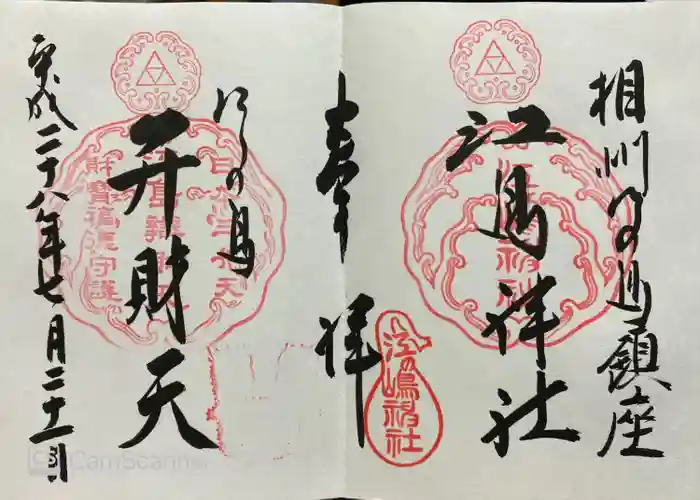 相州江の島鎮座
江島神社
奉拝
江の嶋神社
江の島
弁財天
財寶福徳守護
平成二十八年七月二十一日
CamScanner